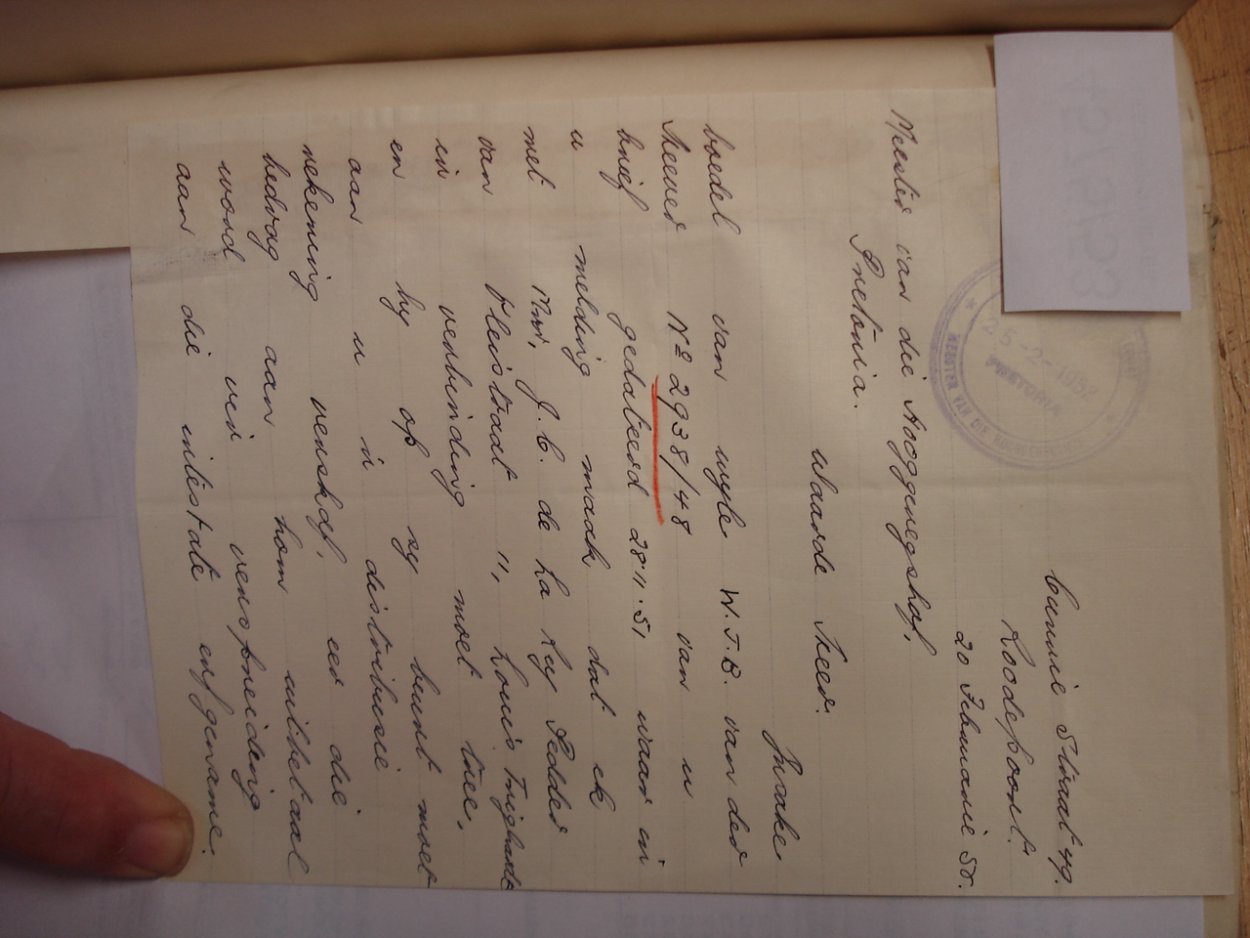 Cunnie Straat 49.
Roodepoort.
20 Februarie 52.
25-2-1952
PRETORIA
MEESTER VAN DIE HOOGGEREGSHOF
Meester van die Hooggeregshof,
Pretoria.
Waarde Heer.
Insake
boedel van wyle W.J.B. van der
Heever No 2938/48 van u
brief gedateerd 28.11.51 waar in
u melding maak dat ek
met Mnr, J. C. de La Rey Pedder
van Pleistraat 11, Louis Trighardt
in verbinding moet tree,
en hy of sy bunt moet
aan u 'n distribusie
rekening verskaf, eer die
bedrag aan hom uitbetaal
word vir verspreiding
aan die intestate erfgename.